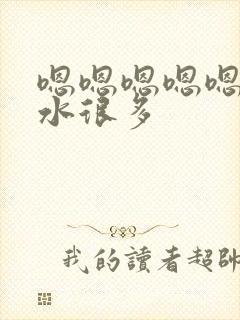 嗯嗯嗯嗯嗯
水很多
我的讀者超帥